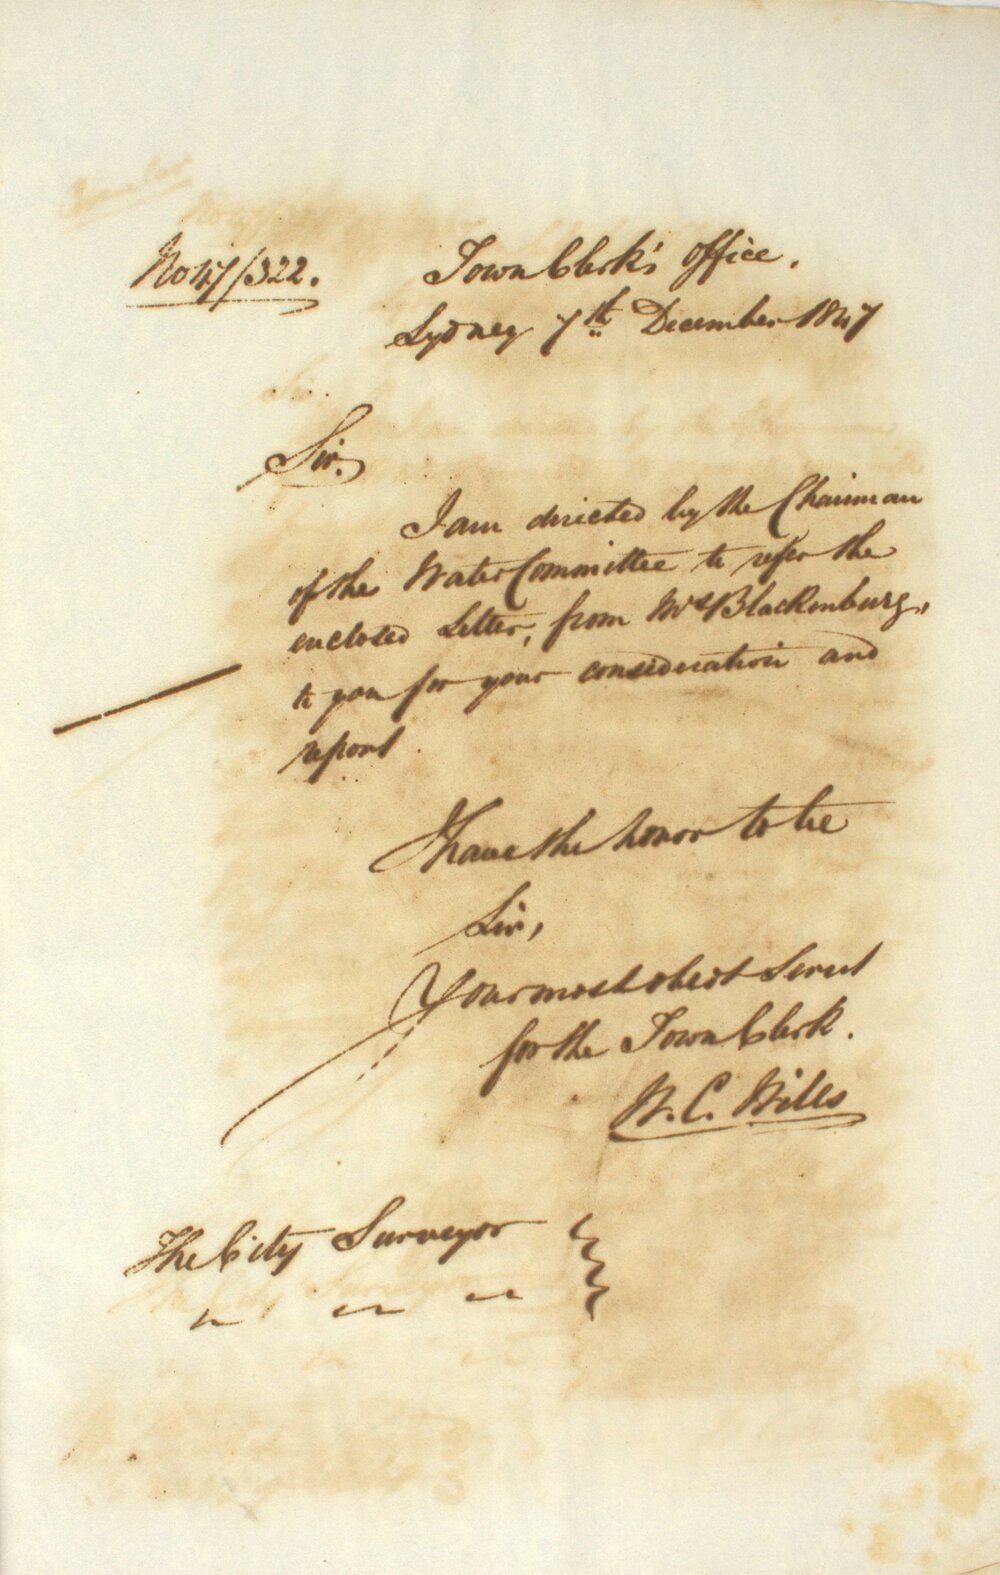 No 47/322.
Town Clerk's Office.
Sydney 7th December 1847
Sir.
I am directed by the Chairman
of the Water Committee to refer the
enclosed Letter, from Mrs Blackenburg,
to you for your consideration and
report.
I have the honor to be
Sir,
Your most obedt Servt
for the Town Clerk.
W. C. Wills
The City Surveyor